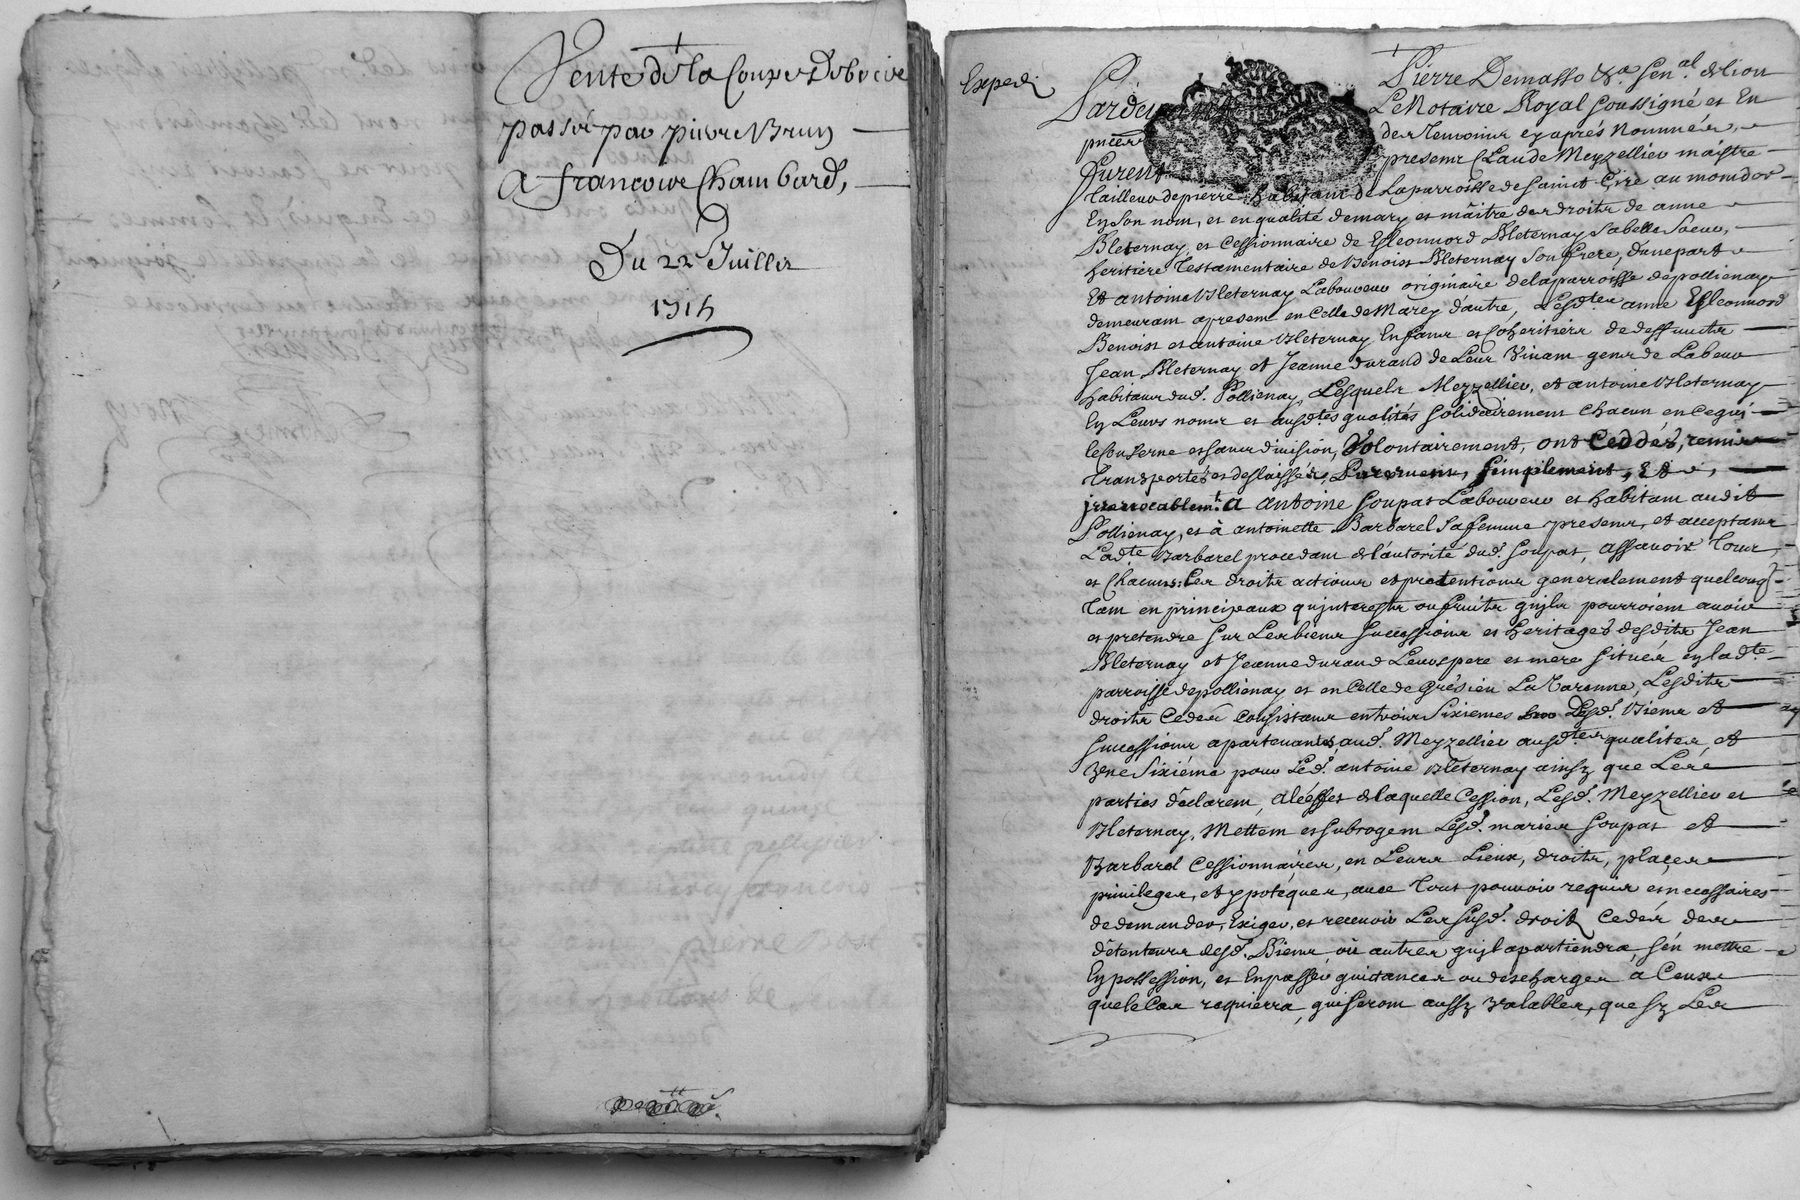 Vente de la Coupe De bois
passé par pierre Brun
A francois Chambard,
Du 22e Juillet
1714
Expedi
Pierre Demasso &a. Sen.al de Lion
Pardevant Le Notaire Royal Soussigné et En
pnces des Temoins cy aprés Nommés,
Furent presens Claude Meyzellier maistre
Tailleur de pierre habitant de La parroisse de Saint Cire au mondor
En Son nom, et en qualité de mary et maitre des droits de anne
Bleternay, et Cessionnaire de Esleonnord Bleternay Sa belle Soeur,
heritiere Testamentaire de Benoist Bleternay Son frere, d'une part
Et antoine Bleternay Laboureur originaire de la parroisse de pollienay
demeurant a present en Celle de Marcy d'autre, Lesd.tes anne Esleonnord
Benoist et antoine Bleternay Enfans et Coheritiers de deffuncts
Jean Bleternay et Jeanne durand de Leur Vivant gens de Labeur
habitans dud. Pollienay, Lesquels Meyzellier, et antoine Bleternay
En Leurs noms et ausd.tes qualités Solidairement Chacun en ce qui
les Concerne et sans division, Volontairement, ont Ceddés, remis
Transportés et deslaissés, Purement, Simplement, Et
irrevocablem.t A Antoine Goupat Laboureur et habitant audit
Pollienay, et à antoinette Barbarel Sa femme presens, et acceptans
Lad.te Barbarel procedant de l'autorité dud. Goupat, assavoir Tous
et Chacuns Les droits actions et pretentions generalement quelconq.
Tant en principaux qu'interests ou fruits qu'ils pourroient avoir
et pretendre Sur Les biens Successions et heritages desdits Jean
Bleternay et Jeanne durand Leurs pere et mere Situés en lad.te
parroisse de pollienay et en Celle de Grésieu La Varenne, Lesdits
droits Cedés Consistans en trois Sixiemes Desd. Biens et
Successions apartenants aud. Meyzellier ausd.tes qualites, et
Vne Sixiéme pour Led. antoine Bleternay ainsy que Les
parties déclarent, A l'effet de laquelle Cession, Lesd. Meyzellier et
Bleternay, Mettent et Subrogent Lesd. mariés Goupat et
Barbarel Cessionnaires, en Leurs Lieux, droits, places
privileges, et ypoteques, avec Tout pouvoir requis et necessaires
de demander, Exiger, et recevoir Les Susd. droits Cedés des
détenteurs desd. Biens, où autres qu'il apartiendra, S'en mettre
En possession, et En passer quittances ou descharges à Ceux
que le Cas requierra, qui Seront aussy valables, que Sy Les